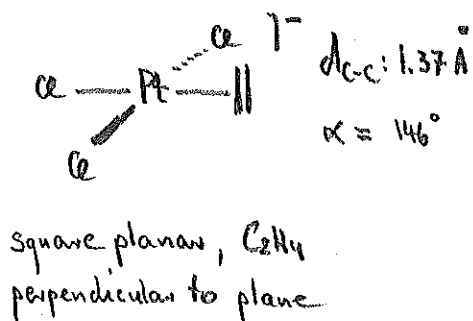 Cl ⁻
Cl Pt
Cl
d_C-C: 1.37 Å
α = 146°
square planar, C₂H₄
perpendicular to plane